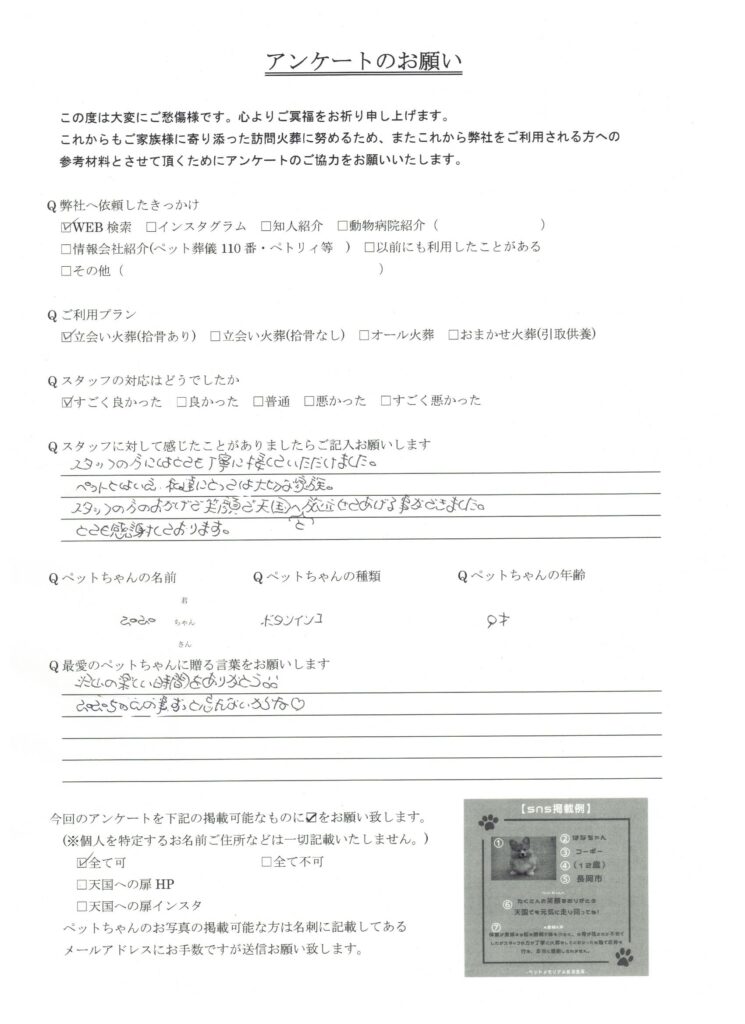 アンケートのお願い
この度は大変にご愁傷様です。心よりご冥福をお祈り申し上げます。
これからもご家族様に寄り添った訪問火葬に努めるため、またこれから弊社をご利用される方への
参考材料とさせて頂くためにアンケートのご協力をお願いいたします。
Q 弊社へ依頼したきっかけ
☑WEB 検索 □インスタグラム □知人紹介 □動物病院紹介（ ）
□情報会社紹介(ペット葬儀 110 番・ペトリィ等 ) □以前にも利用したことがある
□その他（ ）
Q ご利用プラン
☑立会い火葬(拾骨あり) □立会い火葬(拾骨なし) □オール火葬 □おまかせ火葬(引取供養)
Q スタッフの対応はどうでしたか
☑すごく良かった □良かった □普通 □悪かった □すごく悪かった
Q スタッフに対して感じたことがありましたらご記入お願いします
スタッフの方にはとても丁寧に接していただけました。
ペットとはいえ、私達にとっては大切な家族。
スタッフの方のおかげで笑顔で天国へ旅立たせてあげる事ができました。
とても感謝しております。
Q ペットちゃんの名前 Q ペットちゃんの種類 Q ペットちゃんの年齢
君
ちゃん ボタンインコ 9才
さん
Q 最愛のペットちゃんに贈る言葉をお願いします
沢山の楽しい時間をありがとう
ちゃんの事ずっと忘れないからな♡
今回のアンケートを下記の掲載可能なものに☑をお願い致します。
(※個人を特定するお名前ご住所などは一切記載いたしません。)
☑全て可 □全て不可
□天国への扉 HP
□天国への扉インスタ
ペットちゃんのお写真の掲載可能な方は名刺に記載してある
メールアドレスにお手数ですが送信お願い致します。
【sns掲載例】
①
②はなちゃん
③コーギー
④(12歳)
⑤長岡市
⑥たくさんの笑顔をありがとう
天国でも元気に走り回ってね!
⑦